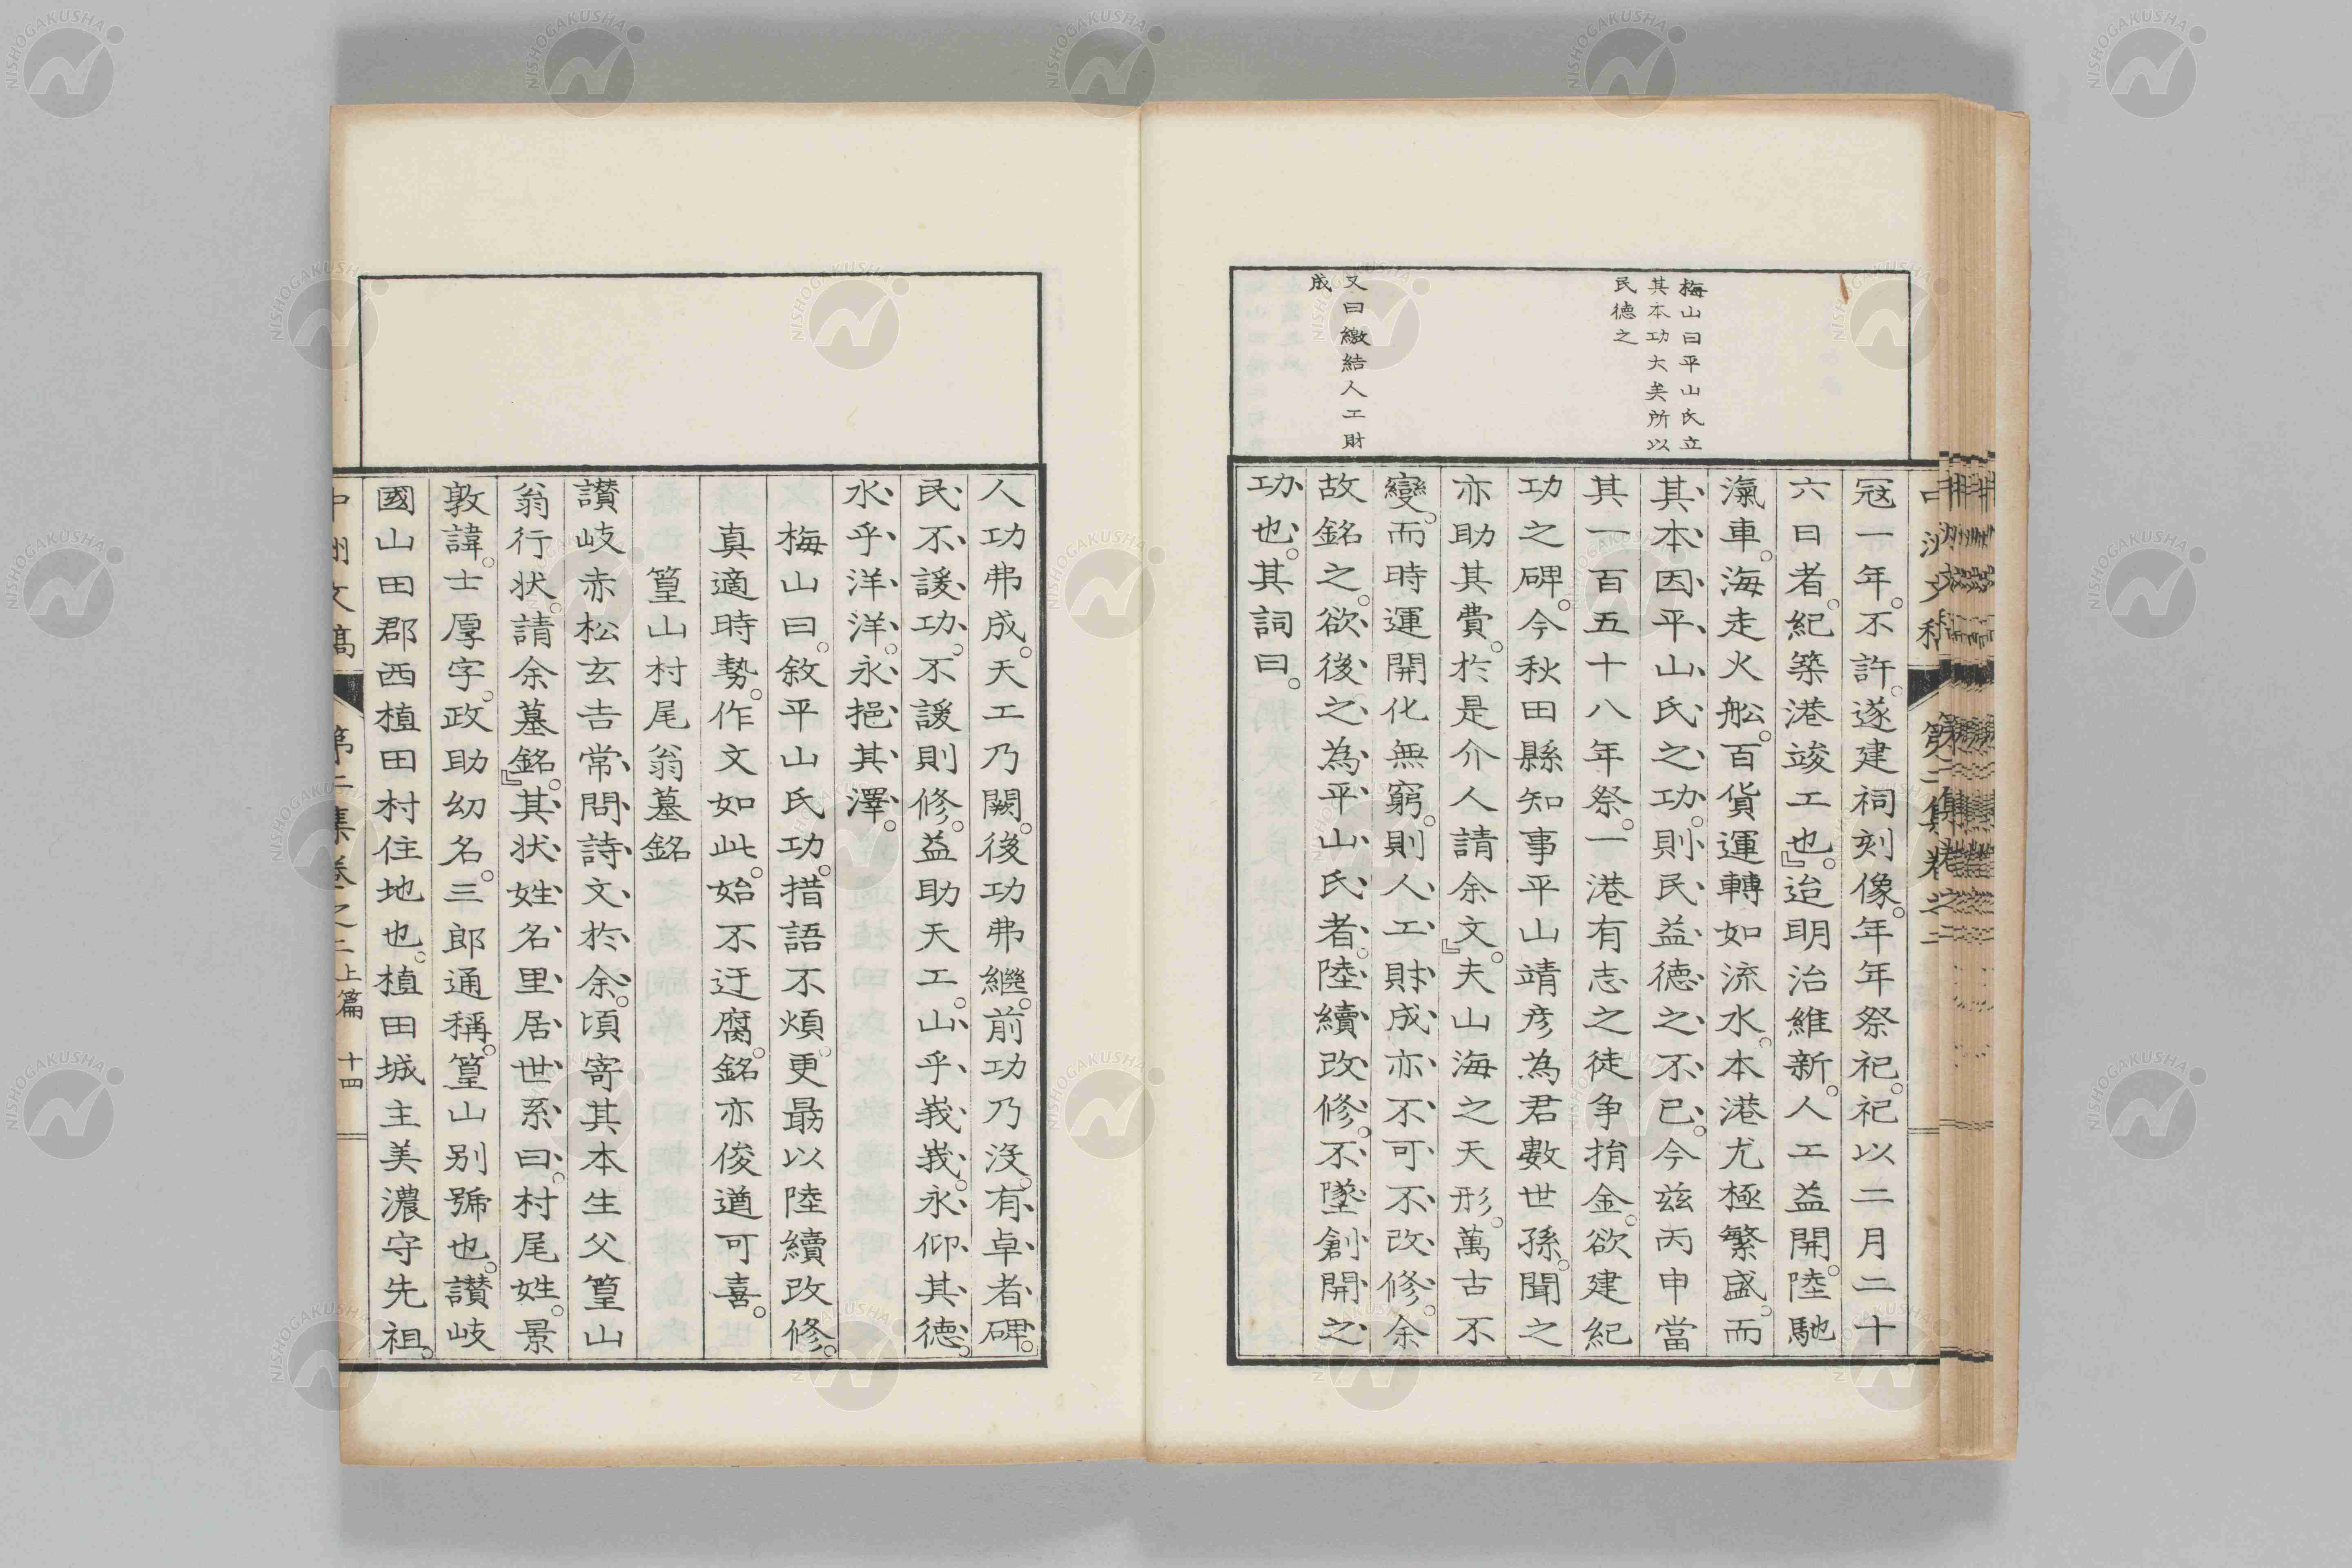 梅山曰平山氏立
其本功大矣所以
民德之
又曰繳結人工財
成
冠一年。不許。遂建祠刻像。年年祭祀。祀以二月二十
六日者。紀築港竣工也。』迨明治維新。人工益開。陸馳
滊車。海走火舩。百貨運轉如流水。本港尤極繁盛。而
其本因平山氏之功。則民益德之不已。今兹丙申當
其一百五十八年祭。一港有志之徒争捐金。欲建紀
功之碑。今秋田縣知事平山靖彦為君數世孫。聞之
亦助其費。於是介人請余文。』夫山海之天形。萬古不
變。而時運開化無窮。則人工財成亦不可不改修。余
故銘之。欲後之為平山氏者。陸續改修。不墜創開之
功也。其詞曰。
人功弗成。天工乃闕。後功弗繼。前功乃沒。有卓者碑。
民不諼功。不諼則修。益助天工。山乎峩峩。永仰其德。
水乎洋洋。永挹其澤。
梅山曰。敘平山氏功。措語不煩。更最以陸續改修。
真適時勢。作文如此。始不迂腐。銘亦俊遒可喜。
篁山村尾翁墓銘
讃岐赤松玄吉常問詩文於余。頃寄其本生父篁山
翁行狀。請余墓銘。』其狀姓名里居世系曰。村尾姓。景
敦諱。士厚字。政助幼名。三郎通稱。篁山别號也。讃岐
國山田郡西植田村住地也。植田城主美濃守先祖。
中洲文稿
第二集卷之二上篇
十四